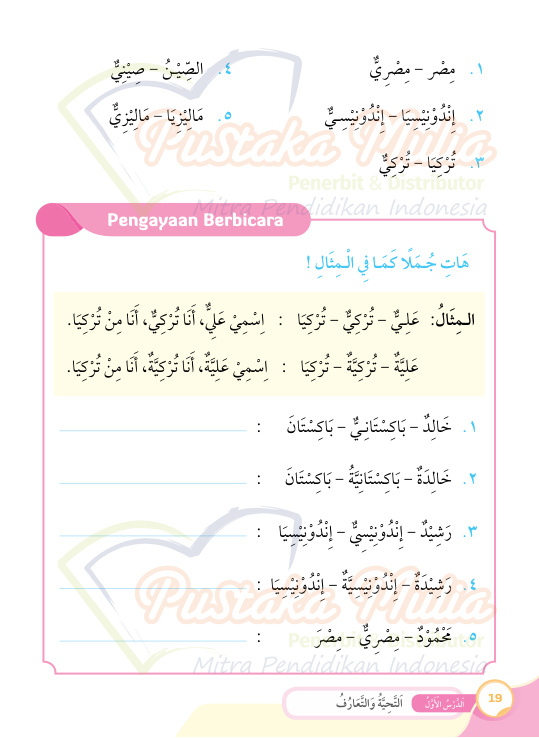 ١. مِصْر – مِصْرِيٌّ
٢. إِنْدُوْنِيْسِيَا – إِنْدُوْنِيْسِيٌّ
٣. تُرْكِيَا – تُرْكِيٌّ
٤. الصِّيْنُ – صِيْنِيٌّ
٥. مَالِيْزِيَا – مَالِيْزِيٌّ
Pustaka Mulia
Penerbit & Distributor
Mitra Pendidikan Indonesia
Pengayaan Berbicara
هَاتِ جُمَلًا كَمَا فِي الْمِثَالِ !
الـمِثَالُ: عَلِيٌّ – تُرْكِيٌّ – تُرْكِيَا : اِسْمِيْ عَلِيٌّ، أَنَا تُرْكِيٌّ، أَنَا مِنْ تُرْكِيَا.
عَلِيَّةٌ – تُرْكِيَّةٌ – تُرْكِيَا : اِسْمِيْ عَلِيَّةٌ، أَنَا تُرْكِيَّةٌ، أَنَا مِنْ تُرْكِيَا.
١. خَالِدٌ – بَاكِسْتَانِيٌّ – بَاكِسْتَانَ :
٢. خَالِدَةٌ – بَاكِسْتَانِيَّةُ – بَاكِسْتَانَ :
٣. رَشِيْدٌ – إِنْدُوْنِيْسِيٌّ – إِنْدُوْنِيْسِيَا :
٤. رَشِيْدَةٌ – إِنْدُوْنِيْسِيَّةٌ – إِنْدُوْنِيْسِيَا :
٥. مَحْمُوْدٌ – مِصْرِيٌّ – مِصْرَ :
Pustaka Mulia
Penerbit & Distributor
Mitra Pendidikan Indonesia
19 اَلدَّرْسُ الْأَوَّلُ اَلتَّحِيَّةُ وَالتَّعَارُفُ